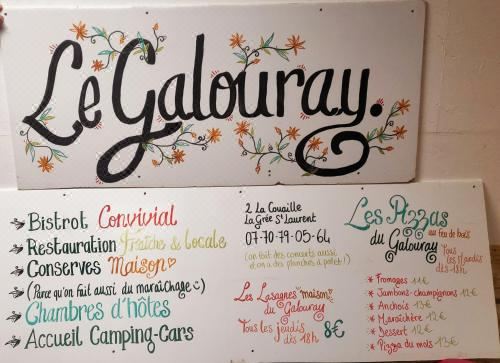 Le Galouray.
→ Bistrot Convivial
→ Restauration Fraîche & Locale
→ Conserves Maison
→ (Parce qu'on fait aussi du maraîchage :-)
→ Chambres d'hôtes
→ Accueil Camping-Cars
2 La Couaille
La Grée St Laurent
07-70-79-05-64
(on fait des concerts aussi,
et on a des planches à palet!)
Les Lasagnes "maison"
du Galouray
Tous les jeudis
dès 18h 8€
Les Pizzas
au feu de bois
du Galouray
Tous
les Mardis
dès 18h
* Fromages 11€
* Jambons-champignons 12€
* Anchois 13€
* Maraîchère 12€
* Dessert 12€
* Pizza du mois 13€